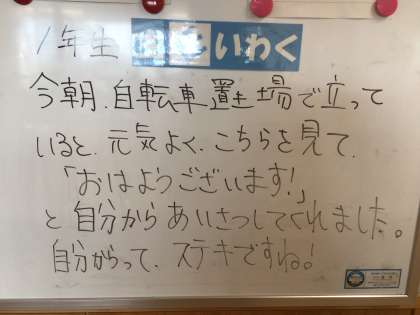 1年生
いわく
今朝、自転車置き場で立って
いると、元気よく、こちらを見て、
「おはようございます!」
と自分からあいさつしてくれました。
自分からって、ステキですね!